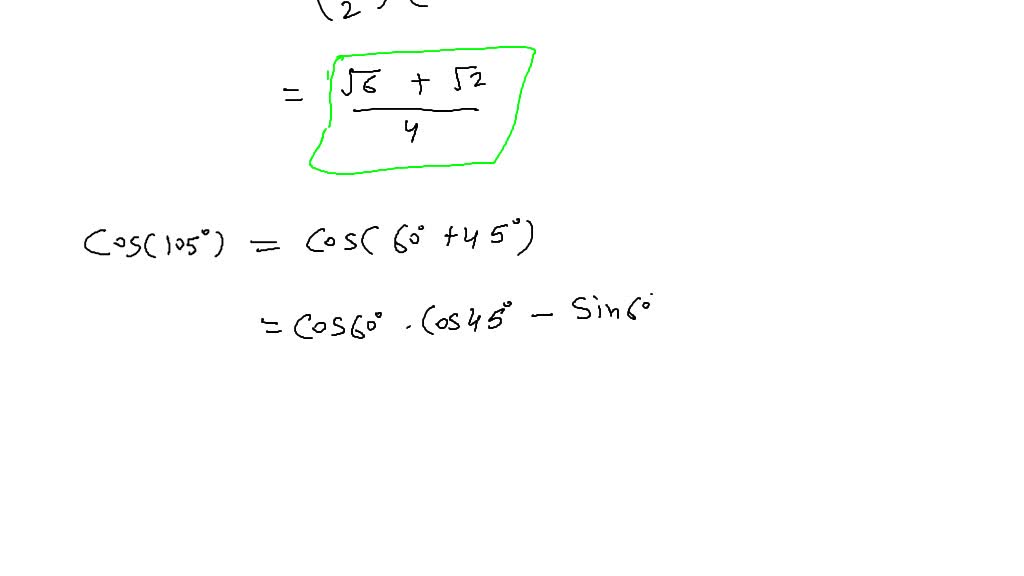 2
= √6 + √2
4
Cos(105°) = Cos(60° +45°)
= Cos60° . Cos45° − Sin60°